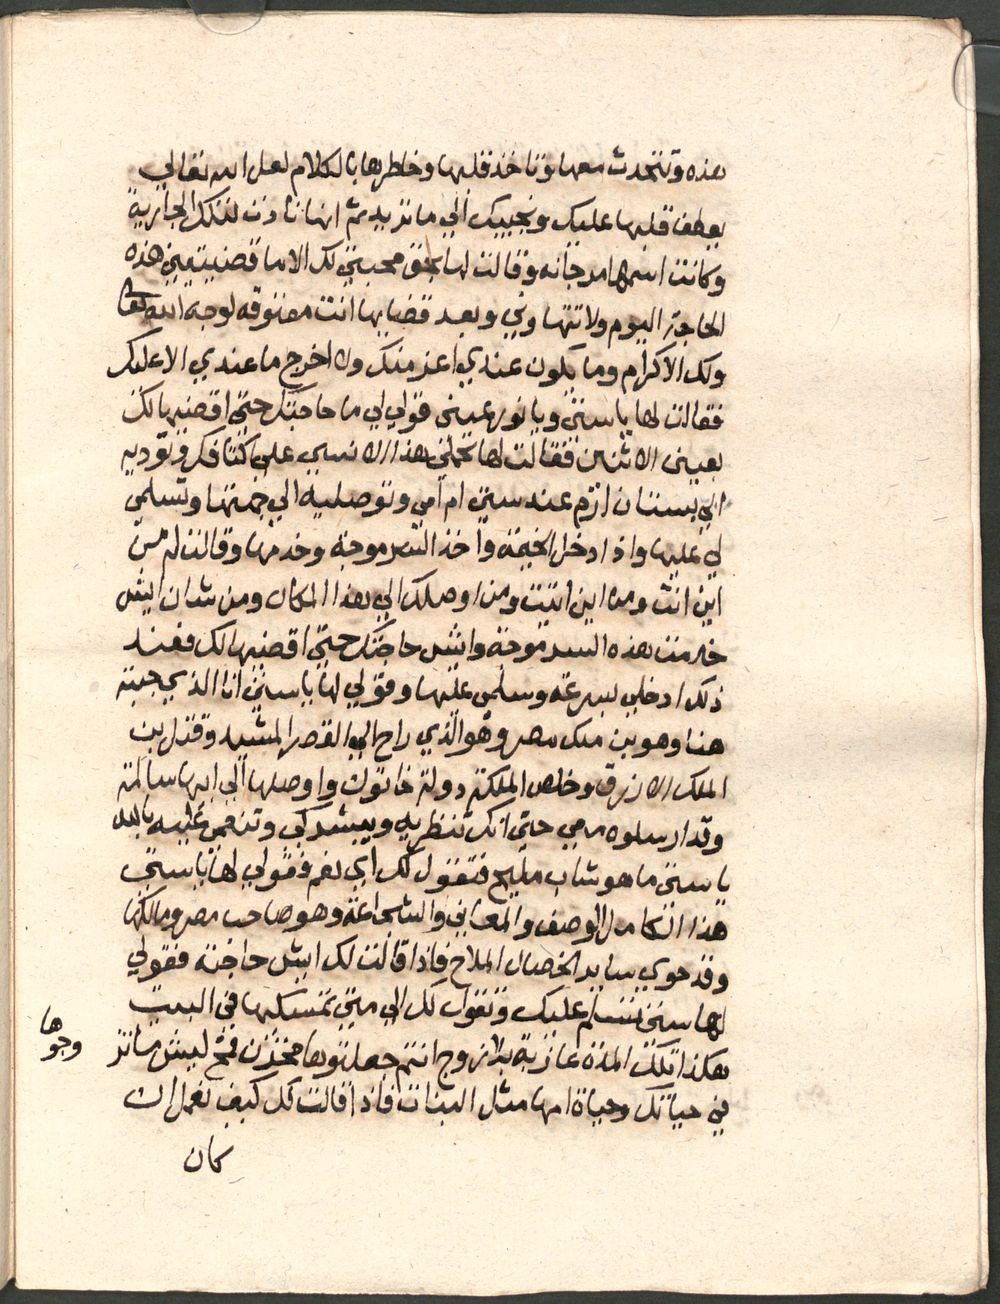 هذه وتتحدث معها وتاخذ قلبها وخاطرها بالكلام لعل الله تعالي
يعطف قلبها عليك ونجيبك الي ما تريد ثم انها نادت لتلك الجارية
وكانت اسمها مرجانه وقالت لها بحق محبتي لك الا ما قضيتيني هذه
الحاجة اليوم ولا تتهاوني وبعد قضايها انت معتوقه لوجه الله تعا
ولك الاكرام وما يكون عندي اعز منك ولا اخرج ما عندي الا عليك
فقالت لها يا ستي ويا نور عيني قولي لي ما حاجتك حتي اقضيها لك
بعيني الاثنين فقالت لها تحملي هذا الانسي علي اكتافك وتوديه
الي بستان ارم عند ستي ام امي وتوصليه الي خيمتها وتسلمي
لي عليها واذا دخل الخيمة واخذ السرموجة وخدمها وقالت له من
اين انت ومن اين اتيت ومن اوصلك الي هذا المكان ومن شان ايش
خدمت هذه السرموجة وايش حاجتك حتي اقضيها لك فعند
ذلك ادخلي بسرعة وسلمي عليها وقولي لها يا ستي انا الذي جبته
هنا وهو بن ملك مصر وهو الذي راح الي القصر المشيد وقتل بن
الملك الازرق وخلص الملكة دولة خاتون واوصلها الي ابيها سالمة
وقد ارسلوه معي حتي انك تنظريه ويبشرك وتنعمي عليه بالله
يا ستي ما هو شاب مليح فتقول لك اي نعم فقولي لها يا ستي
هذا الكامل الوصف والمعاني والشجاعة وهو صاحب مصر ومالكها
وقد حوي ساير الخصال الملاح فاذا قالت لك ايش حاجته فقولي
لها ستي تسلم عليك وتقول لك الي متي تمسكها في البيت
هكذا تلك المدة عازبة بلا زواج انتم جعلتوها مخزن قمح ليش ما تز
وجوها
في حياتك وحياة امها مثل البنات فاذا قالت لك كيف نعمل ان
كان